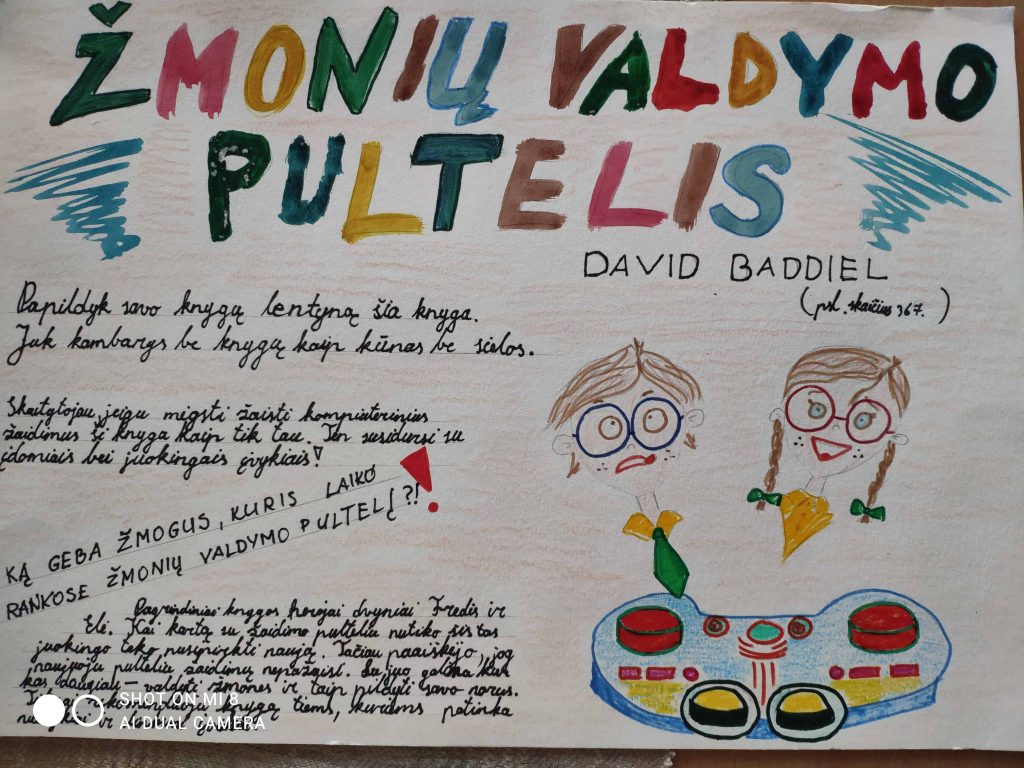 ŽMONIŲ VALDYMO
PULTELIS
DAVID BADDIEL
(psl. skaičius 367.)
Papildyk savo knygų lentyną šia knyga.
Juk kambarys be knygų kaip kūnas be sielos.
Skaitytojau, jeigu mėgsti žaisti kompiuterinius
žaidimus ši knyga kaip tik tau. Ten susidursi su
įdomiais bei juokingais įvykiais!
KĄ GEBA ŽMOGUS, KURIS LAIKO
RANKOSE ŽMONIŲ VALDYMO PULTELĮ?!
Pagrindiniai knygos herojai dvyniai Fredis ir
Elė. Kai kartą su žaidimo pulteliu nutiko šis tas
juokingo teko nusipirkti naują. Tačiau paaiškėjo, jog
naujuoju pulteliu žaidimų nepažaisi. Su juo galima kai
kas daugiau – valdyti žmones ir taip pildyti savo norus.
knygą tiems, kuriems patinka
ir
SHOT ON MI 8
AI DUAL CAMERA